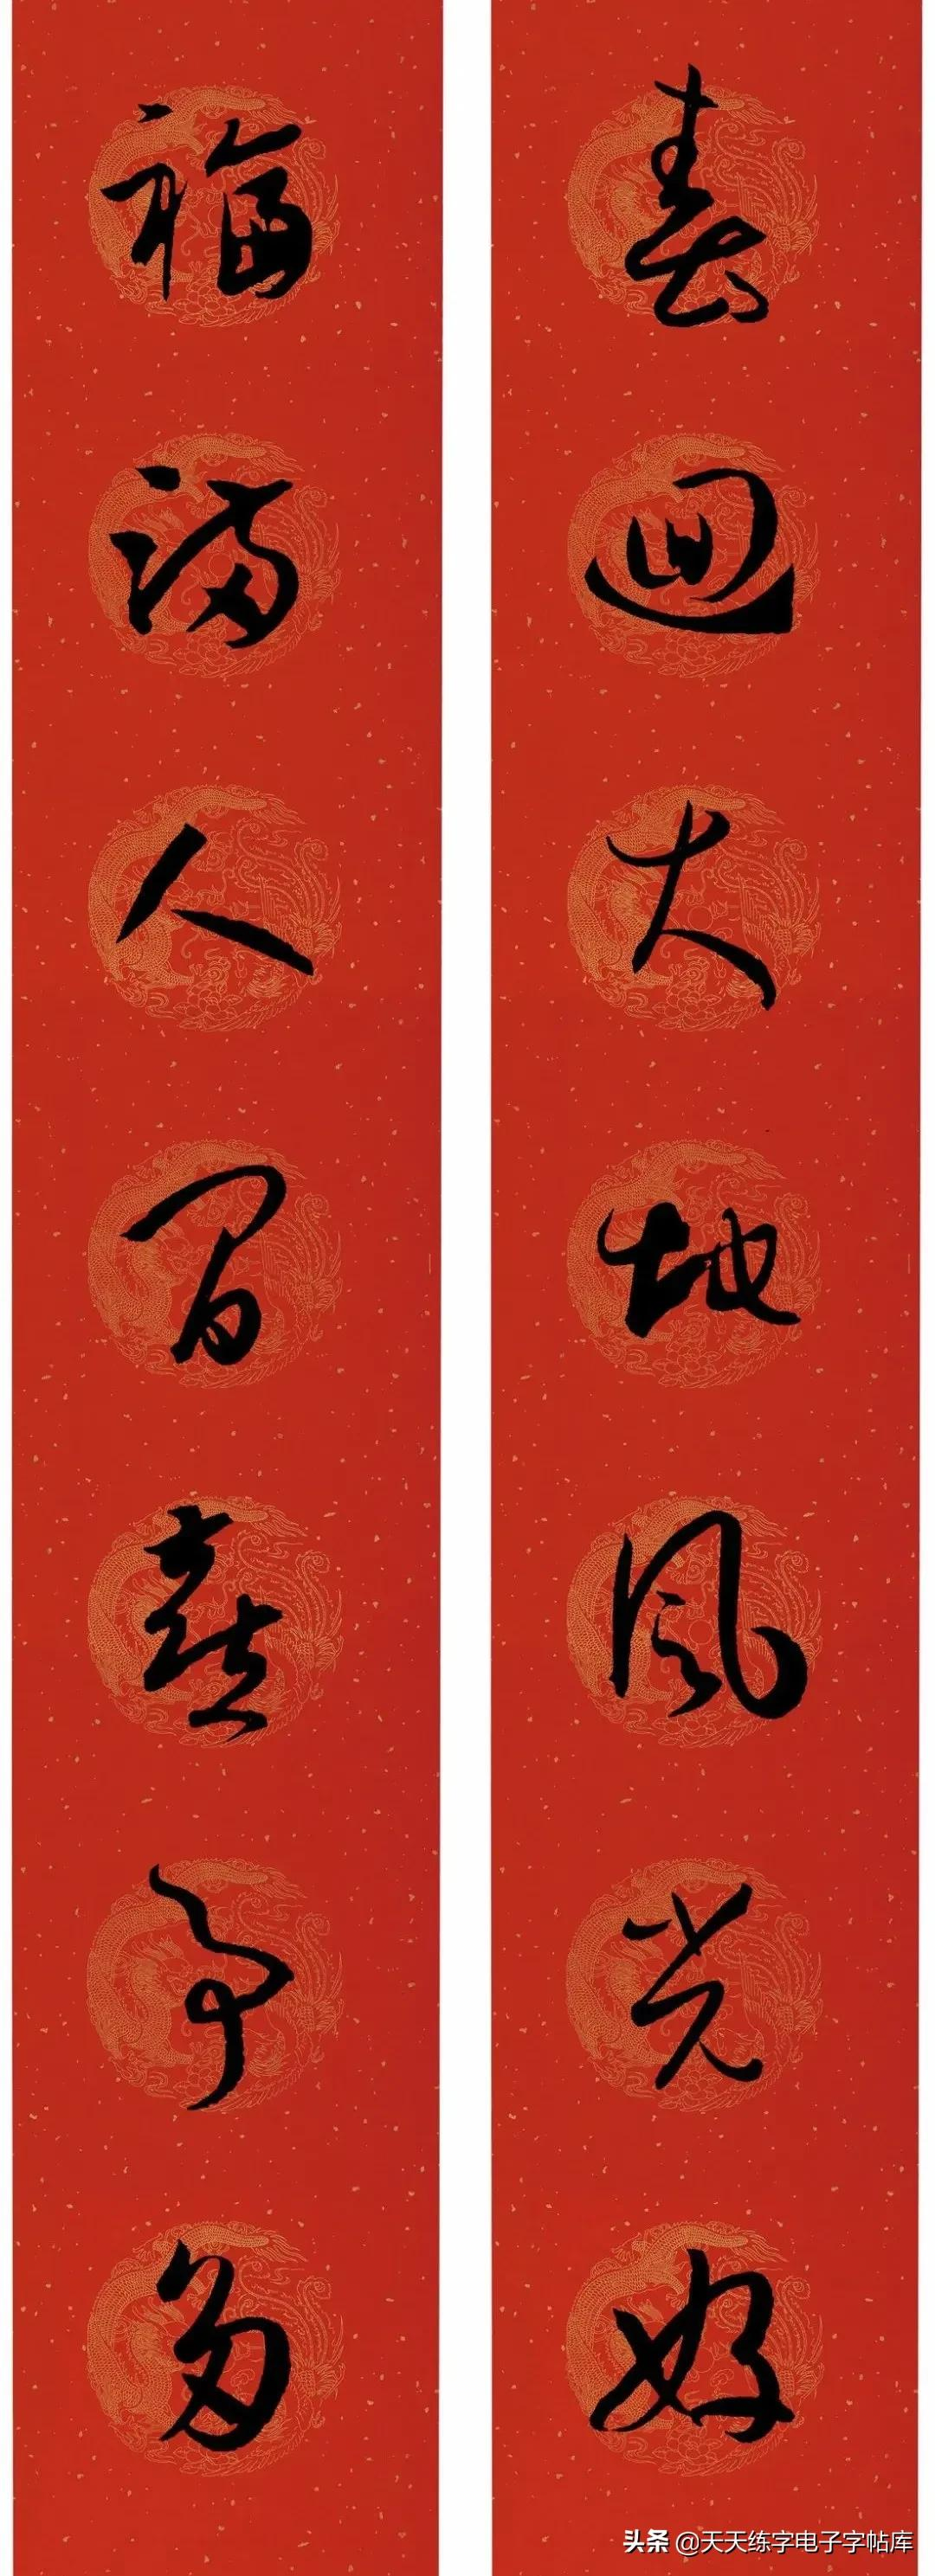 春回大地風光好
福满人间喜事多
头条 @天天练字电子字帖库